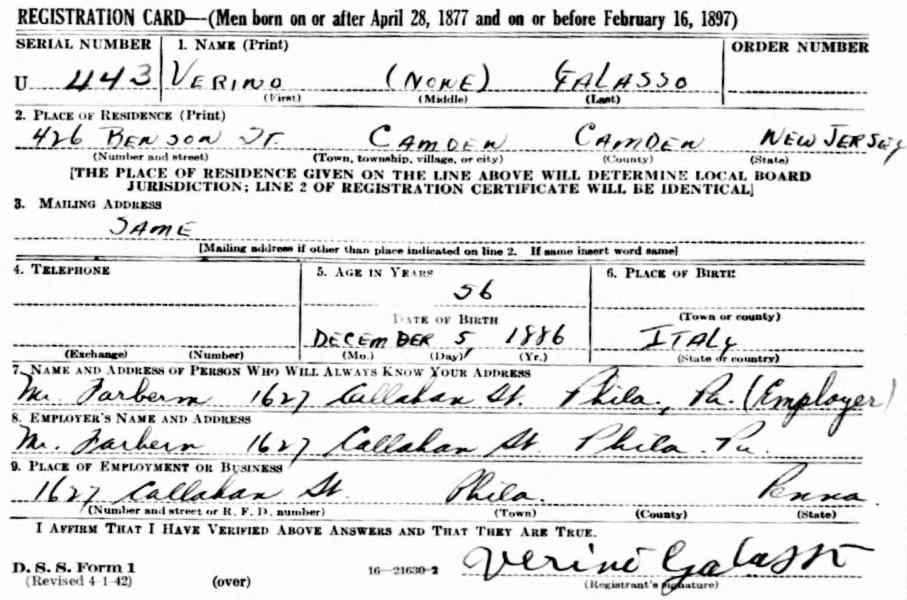 REGISTRATION CARD—(Men born on or after April 28, 1877 and on or before February 16, 1897)
SERIAL NUMBER 1. NAME (Print) ORDER NUMBER
U 443 VERINO (NONE) GALASSO
(First) (Middle) (Last)
2. PLACE OF RESIDENCE (Print)
426 BENSON ST. CAMDEN CAMDEN NEW JERSEY
(Number and street) (Town, township, village, or city) (County) (State)
[THE PLACE OF RESIDENCE GIVEN ON THE LINE ABOVE WILL DETERMINE LOCAL BOARD
JURISDICTION; LINE 2 OF REGISTRATION CERTIFICATE WILL BE IDENTICAL]
3. MAILING ADDRESS
SAME
[Mailing address if other than place indicated on line 2. If same insert word same]
4. TELEPHONE 5. AGE IN YEARS 6. PLACE OF BIRTH
56
DATE OF BIRTH (Town or county)
DECEMBER 5, 1886 ITALY
(Exchange) (Number) (Mo.) (Day) (Yr.) (State or country)
7. NAME AND ADDRESS OF PERSON WHO WILL ALWAYS KNOW YOUR ADDRESS
Mr. Farbern 1627 Callahan St. Phila., Pa. (Employer)
8. EMPLOYER'S NAME AND ADDRESS
Mr. Farbern 1627 Callahan St. Phila. Pa.
9. PLACE OF EMPLOYMENT OR BUSINESS
1627 Callahan St. Phila. Penna
(Number and street or R. F. D. number) (Town) (County) (State)
I AFFIRM THAT I HAVE VERIFIED ABOVE ANSWERS AND THAT THEY ARE TRUE.
D. S. S. Form 1
(Revised 4-1-42) (over) 16—21630-2 Verino Galasso
(Registrant's signature)